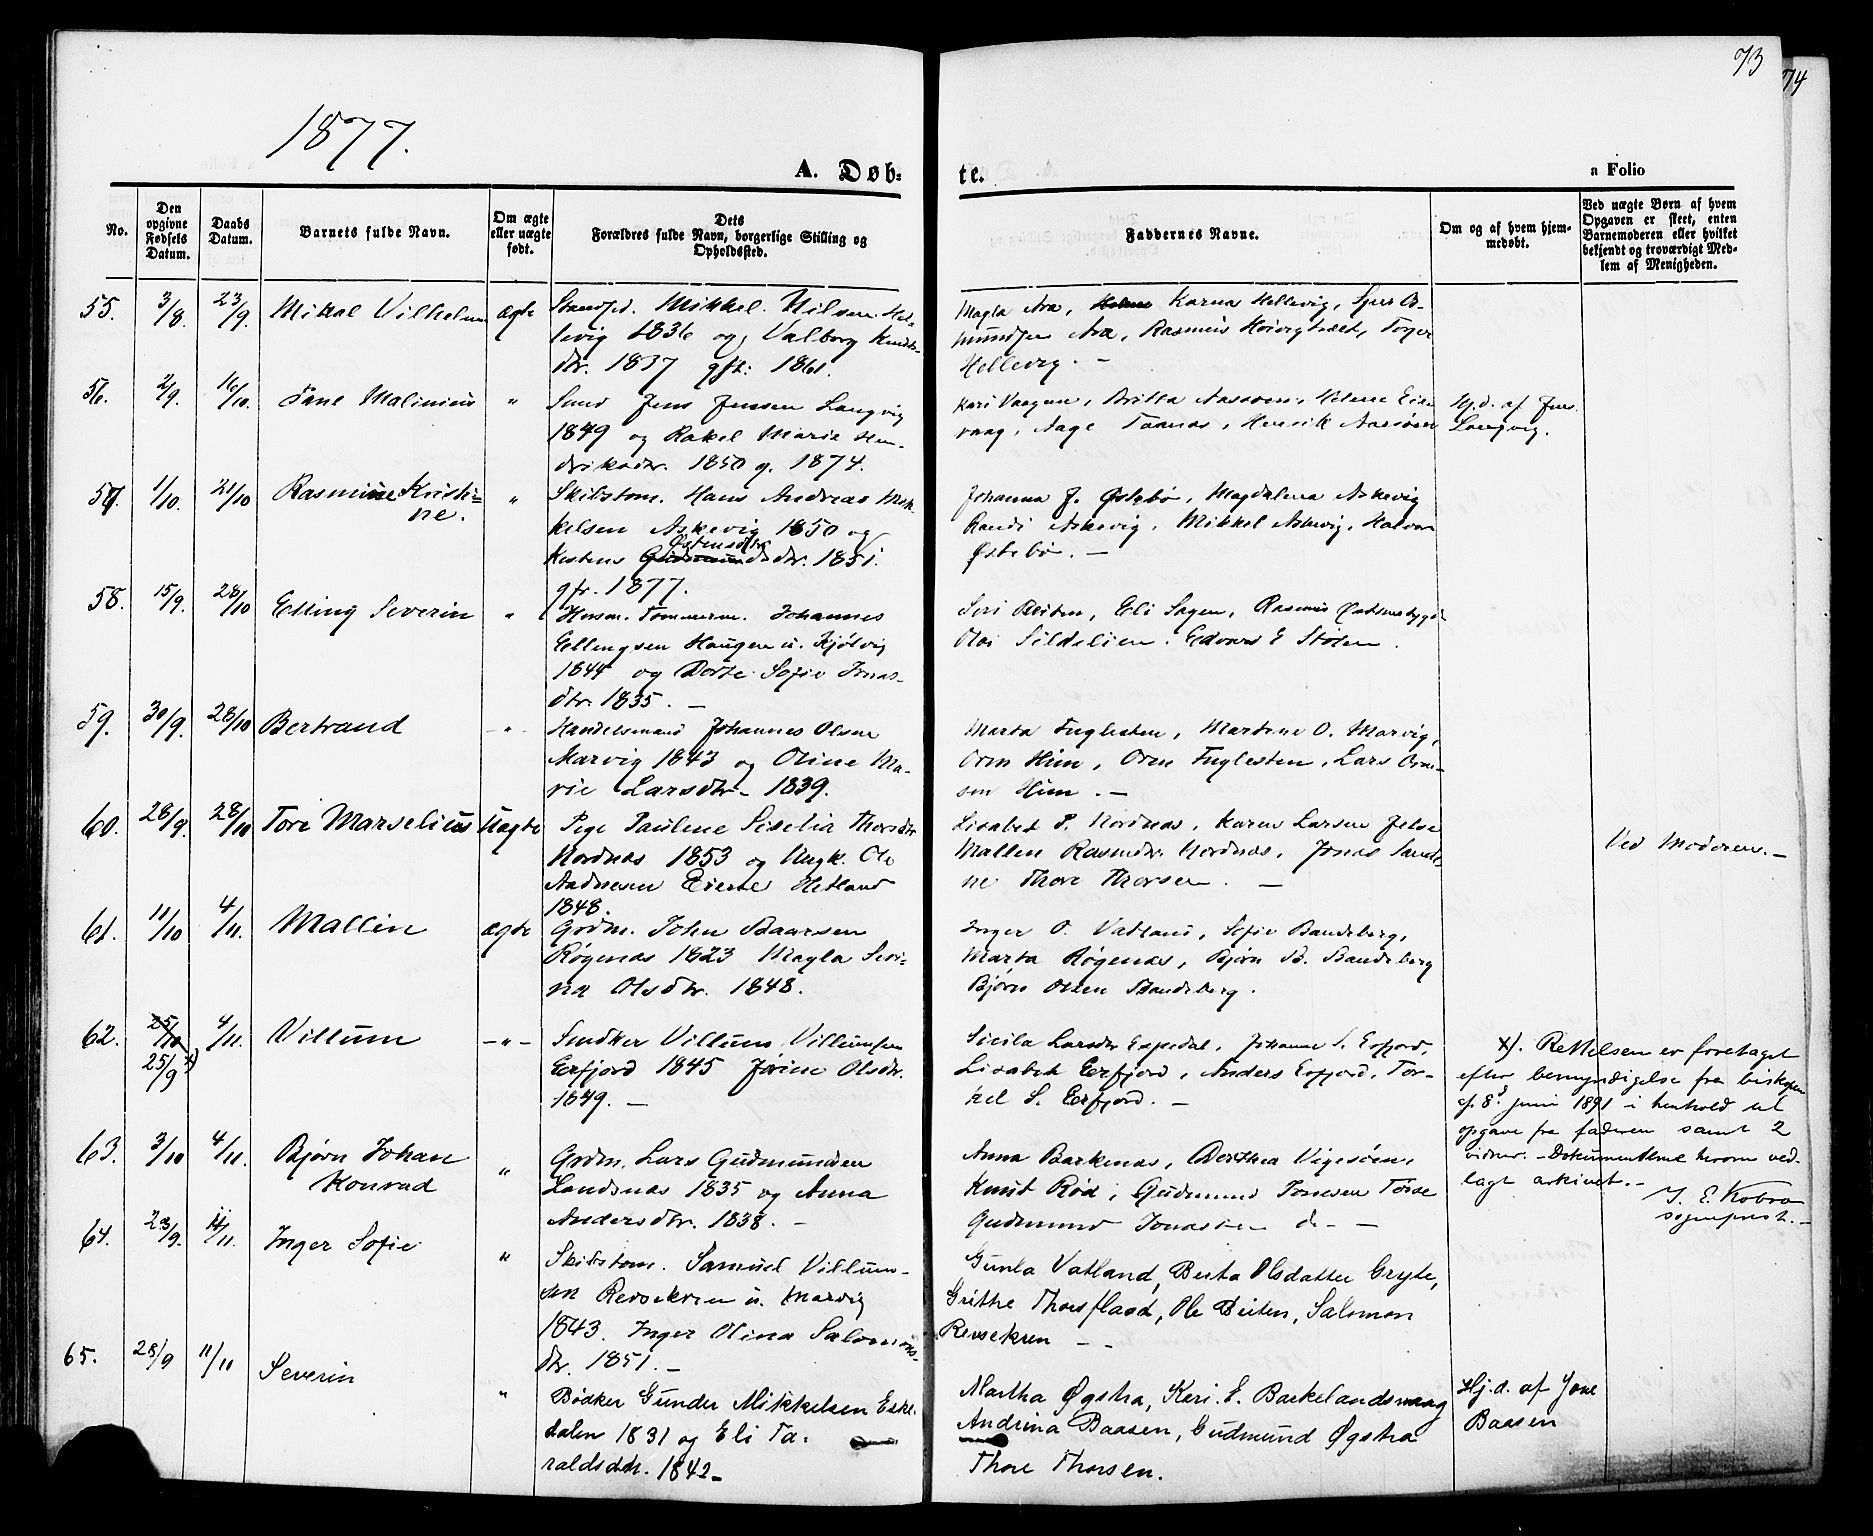 73
74
1877.
A. Døb-
te.
a Folio
No.
Den opgivne Fødsels Datum.
Daabs Datum.
Barnets fulde Navn.
Om ægte eller uægte født.
Dets Forældres fulde Navn, borgerlige Stilling og Opholdssted.
Faddernes Navne.
Om og af hvem hjemmedøbt.
Ved uægte Børn af hvem Opgaven er skeet, enten Barnemoderen eller hvilket bekjendt og troværdigt Medlem af Menigheden.
55. 3/8 23/9 Mikal Vilhelm ægte
Strandsd. Mikkel Nilsen Hel-
levig 1836 og Valborg Knuds-
dtr. 1837 gft: 1861.
Magla Ara, Karna Hellevig, Sjur As-
mundsen Ara, Rasmus, Torger
Hellevig. —
56. 2/9. 16/10. Malinius "
Jens Jensen Langvig
1849 og Rakel Marie Hen-
driksdtr. 1850 g. 1874.
Kari Vaagen, Britta Aasøen, Helene
vaag, Aage, Henrik Aasøen
Hj.d. af Jens
Langvig.
57. 1/10. 21/10 Rasmine Kristi-
ne. "
Skibstøm. Hans Andreas Mik-
kelsen Askevig 1850 og
Østensdtr
Kestens Gudmundsdtr. 1851.
gft. 1877.
Johanna J. Østebø, Magdalena Askevig
Randi Askevig, Mikkel Askevig, Halvor
Østebø. —
58. 15/9. 28/10 Elling Severin "
Husm. Tømmerm. Johannes
Ellingsen Haugen u. Kjølvig
1844 og Dorte Sofie Jonas-
dtr. 1835. —
Siri Beiten, Eli Hagen, Rasmus
Sildelien. Edvard E Stølen.
59. 30/9. 28/10 Bertrand - " -
Handelsmand Johannes Olsen
Marvig 1843 og Oline Ma-
rie Larsdtr. 1839.
Marta Fuglesten, Martine O. Marvig,
Orm Hiim, Orm Fuglesten, Lars Orm-
sen Hiim. —
60. 28/9. 28/10 Tore Marselius Uægte
Pige Pauline Siselia Thorsdtr
Nordnæs 1853 og Ungk. Ole
Aadnesen Eierte Hetland
1848.
Lisabet P. Nordnæs, Karen Larsen Jelse
Mallen Rasmdtr. Nordnæs, Jonas Sande-
ne Thore Thorsen. —
Ved Moderen. —
61. 11/10 4/11. Mallin ægte
Grdm. John Baarsen
Røgenæs 1823 Magla Seri-
na Olsdtr. 1848.
Inger O. Vatland, Sofie Bandeberg,
Marta Røgenæs, Bjørn B. Bandeberg
Bjørn Olsen Bandeberg.
62. 25/10 4/11. Villum - " -
25/9 x)
Snedker Villum Villumsen
Eerfjord 1845 Jørine Olsdtr.
1849. —
Sicila Larsdtr Espedal, Johanne S. Erfjord,
Lisabet Eerfjord, Anders Erfjord, Tor-
kel S. Eerfjord. —
x). Rettelsen er foretaget
efter bemyndigelse fra biskopen
af 8de juni 1891 i henhold til
opgave fra faderen samt 2
vidner. - Dokumenterne herom ved-
lagt arkivet. -
J. E. Kobro
sogneprest. -
63. 3/10 4/11. Bjørn Johan
Konrad "
Grdm. Lars Gudmundsen
Landsnæs 1835 og Anna
Andersdtr. 1838. —
Anna Barkenæs, Dorthea Vigesøen,
Knut Rød, Gudmund Tønesen
Gudmund Jonassen do —
64. 23/9. 11/11. Inger Sofie "
Skibstøm. Samuel Villum-
sen Revsekren u. Marvig
1843. Inger Olina Salomons-
dtr. 1851. —
Gunla Vatland, Berta Olsdatter Gryte,
Grithe Thorsflaad, Ole Beiten, Salomon
Revsekren — —
65. 28/9 11/11 Severin "
Bødker Gunder Mikkelsen Eske-
dalen 1831 og Eli Ta-
raldsdtr. 1842 —
Martha Øgstra, Kari. E. Barkelandsvaag
Andrina Baasen, Gudmund Øgstra
Thore Thorsen.
Hj.d. af Jone
Baasen